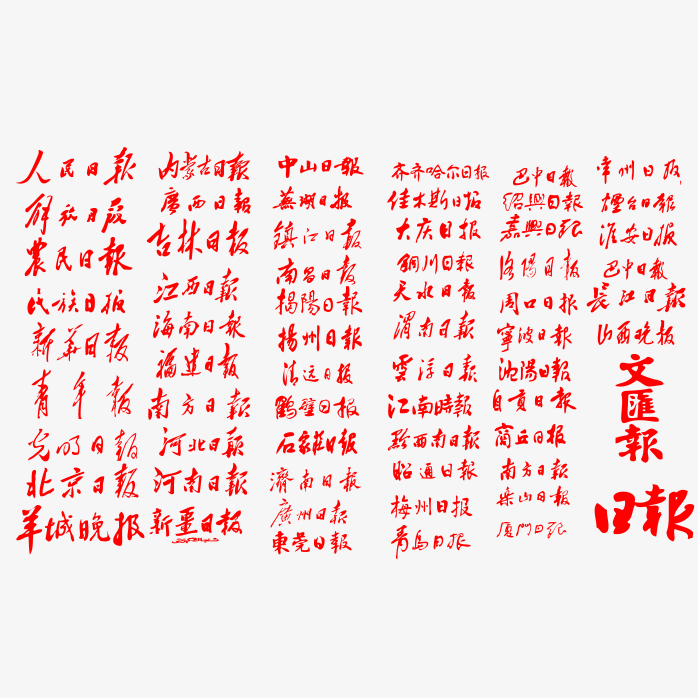 人民日報
解放日报
農民日報
民族日报
新華日報
青年報
光明日報
北京日報
羊城晚报
内蒙古日報
廣西日報
吉林日報
江西日報
海南日報
福建日報
南方日報
河北日報
河南日報
新疆日報
中山日報
蕪湖日报
鎮江日報
南昌日報
揭陽日報
揚州日報
清远日报
鶴壁日报
石家莊日報
濟南日报
廣州日報
東莞日報
齐齐哈尔日报
佳木斯日报
大庆日报
銅川日報
天水日報
渭南日報
雲浮日報
江南時報
黔西南日報
昭通日报
梅州日报
青岛日报
巴中日報
紹興日報
嘉興日報
洛陽日報
周口日报
寧波日報
沈陽日報
自貢日報
商丘日报
南方日報
乐山日報
厦門日報
常州日报
煙台日報
淮安日报
巴中日報
長江日報
山西晚报
文匯報
日報